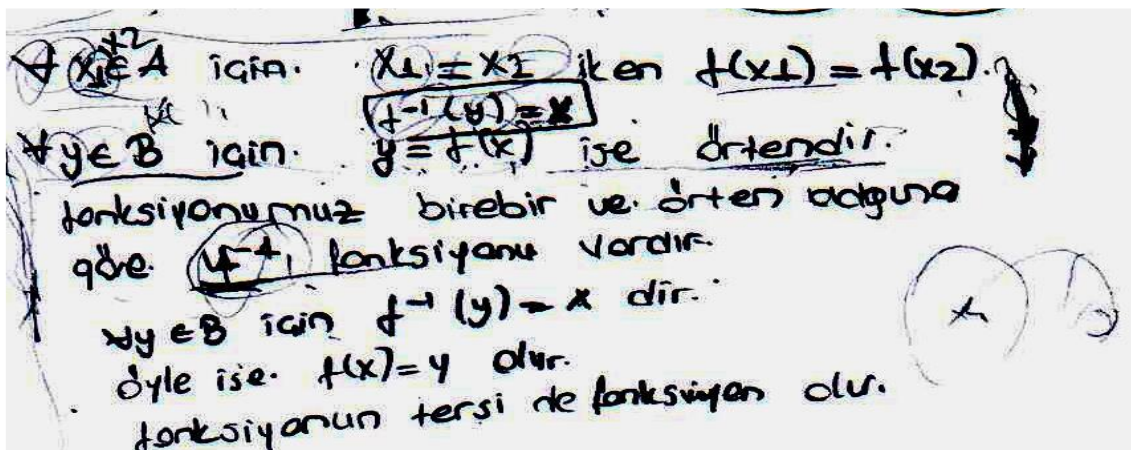 ∀ x1,x2 ∈ A için. x1 = x2 iken f(x1) = f(x2).
f⁻¹(y) = x
∀y ∈ B için. y = f(x) ise örtendir.
fonksiyonumuz birebir ve örten olduğuna
göre. f⁻¹ fonksiyonu vardır.
∀y ∈ B için f⁻¹(y) = x dir.
öyle ise. f(x) = y olur.
fonksiyonun tersi de fonksiyon olur.